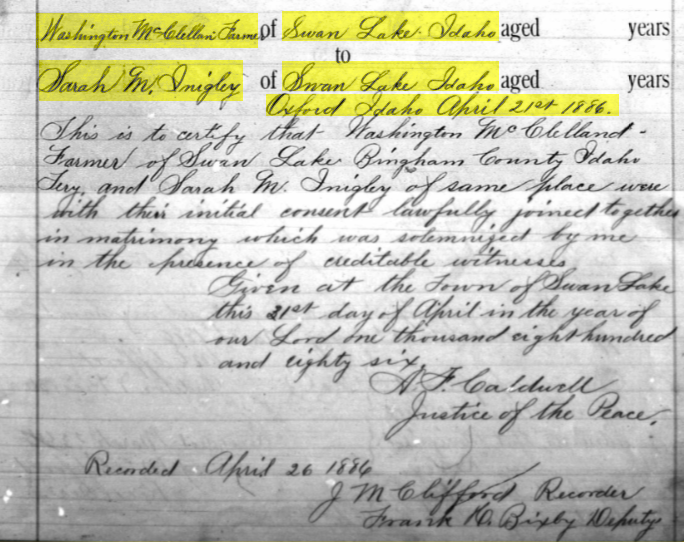 Washington McClellan Farmer of Swan Lake Idaho aged years
to
Sarah M. Inigley of Swan Lake Idaho aged years
Oxford Idaho April 21st 1886.
This is to certify that Washington McClelland-
Farmer of Swan Lake Bingham County Idaho
Tery, and Sarah M. Inigley of same place were
with their initial consent lawfully joined together
in matrimony which was solemnized by me
in the presence of creditable witnesses
Given at the Town of Swan Lake
this 21st day of April in the year of
our Lord one thousand eight hundred
and eighty six.
A. F. Caldwell
Justice of the Peace.
Recorded April 26 1886
J M Clifford Recorder
Frank H. Bixby Deputy